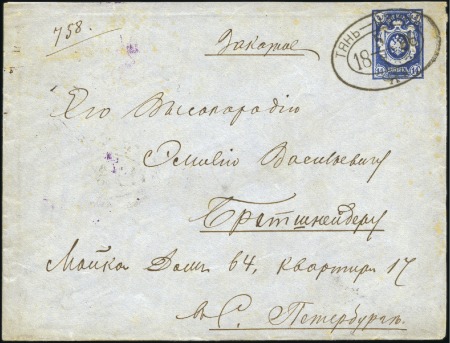 758.
Заказное
ТЯНЬ
18
Его Высокородію
Эмилію Васильевичу
Бретшнейдеру
Мойка Домъ 64, квартира 17
въ С. Петербургъ.